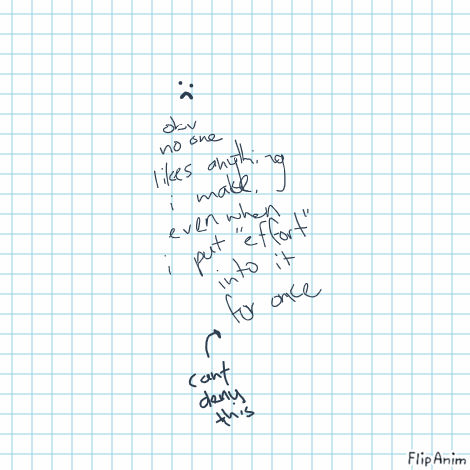 obv
no one
likes anything
i make.
even when
i put "effort"
into it
for once
cant
deny
this
FlipAnim